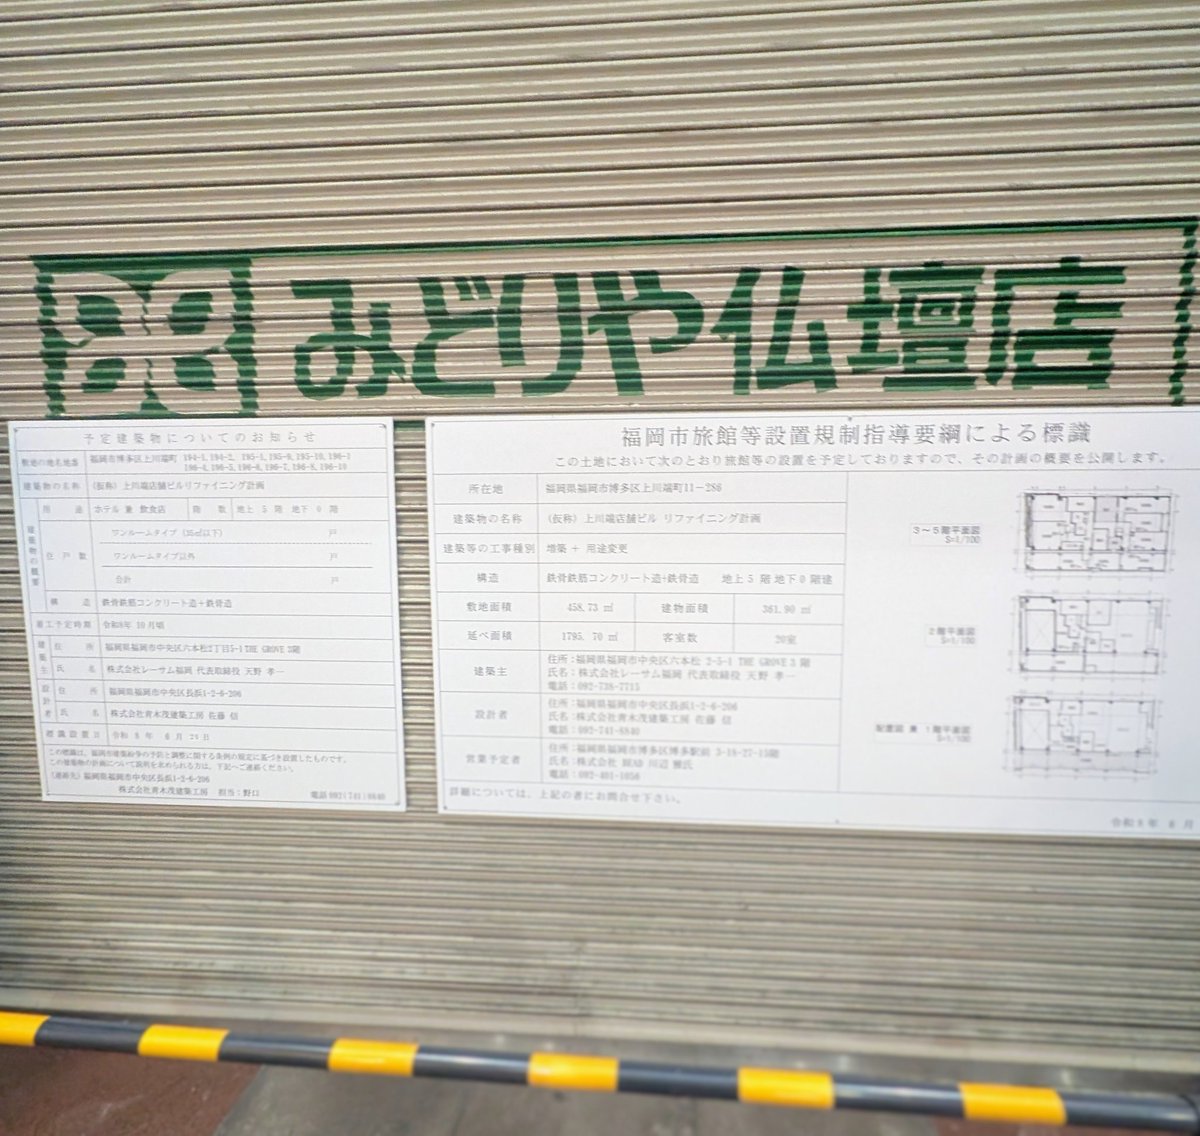 みどりや仏壇店
予定建築物についてのお知らせ
敷地の地名地番 福岡市博多区上川端町 194-1,194-2, 195-1,195-9,195-10,196-1
196-4,196-5,196-6,196-7,196-8,196-10
建築物の名称 (仮称) 上川端店舗ビルリファイニング計画
建築物の概要
用途 ホテル 兼 飲食店 階数 地上 5 階 地下 0 階
住戸数 ワンルームタイプ (35㎡以下) 戸
ワンルームタイプ以外 戸
合計 戸
構造 鉄骨鉄筋コンクリート造+鉄骨造
着工予定時期 令和8年 10月頃
建築主 住所 福岡県福岡市中央区六本松2丁目5-1 THE GROVE 3階
氏名 株式会社レーサム福岡 代表取締役 天野 孝一
設計者 住所 福岡県福岡市中央区長浜1-2-6-206
氏名 株式会社青木茂建築工房 佐藤 信
標識設置日 令和 8 年 6 月 24 日
この標識は、福岡市建築紛争の予防と調整に関する条例の規定に基づき設置したものです。
この建築物の計画について説明を求められる方は、下記へご連絡ください。
(連絡先) 福岡県福岡市中央区長浜1-2-6-206
株式会社青木茂建築工房 担当:野口 電話 092(741)8840
福岡市旅館等設置規制指導要綱による標識
この土地において次のとおり旅館等の設置を予定しておりますので、その計画の概要を公開します。
所在地 福岡県福岡市博多区上川端町11-286
建築物の名称 (仮称) 上川端店舗ビル リファイニング計画
建築等の工事種別 増築 + 用途変更
構造 鉄骨鉄筋コンクリート造+鉄骨造 地上 5 階 地下 0 階建
敷地面積 458.73 ㎡ 建物面積 361.90 ㎡
延べ面積 1795.70 ㎡ 客室数 20室
建築主 住所:福岡県福岡市中央区六本松 2-5-1 THE GROVE 3 階
氏名:株式会社レーサム福岡 代表取締役 天野 孝一
電話:092-738-7715
設計者 住所:福岡県福岡市中央区長浜1-2-6-206
氏名:株式会社青木茂建築工房 佐藤 信
電話:092-741-8840
営業予定者 住所:福岡県福岡市博多区博多駅前 3-18-27-15階
氏名:株式会社
電話:092-401-1056
詳細については、上記の者にお問合せ下さい。
3～5階平面図
S=1/100
2階平面図
S=1/100
配置図 兼 1階平面図
S=1/100
令和 8 年 6 月